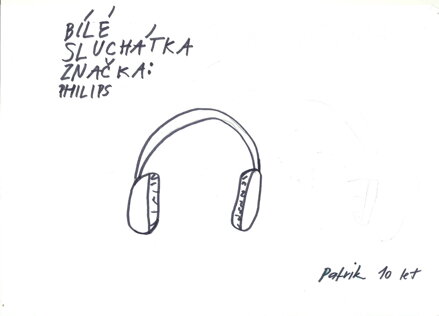 BÍLÉ
SLUCHÁTKA
ZNAČKA:
PHILIPS
Patrik 10 let